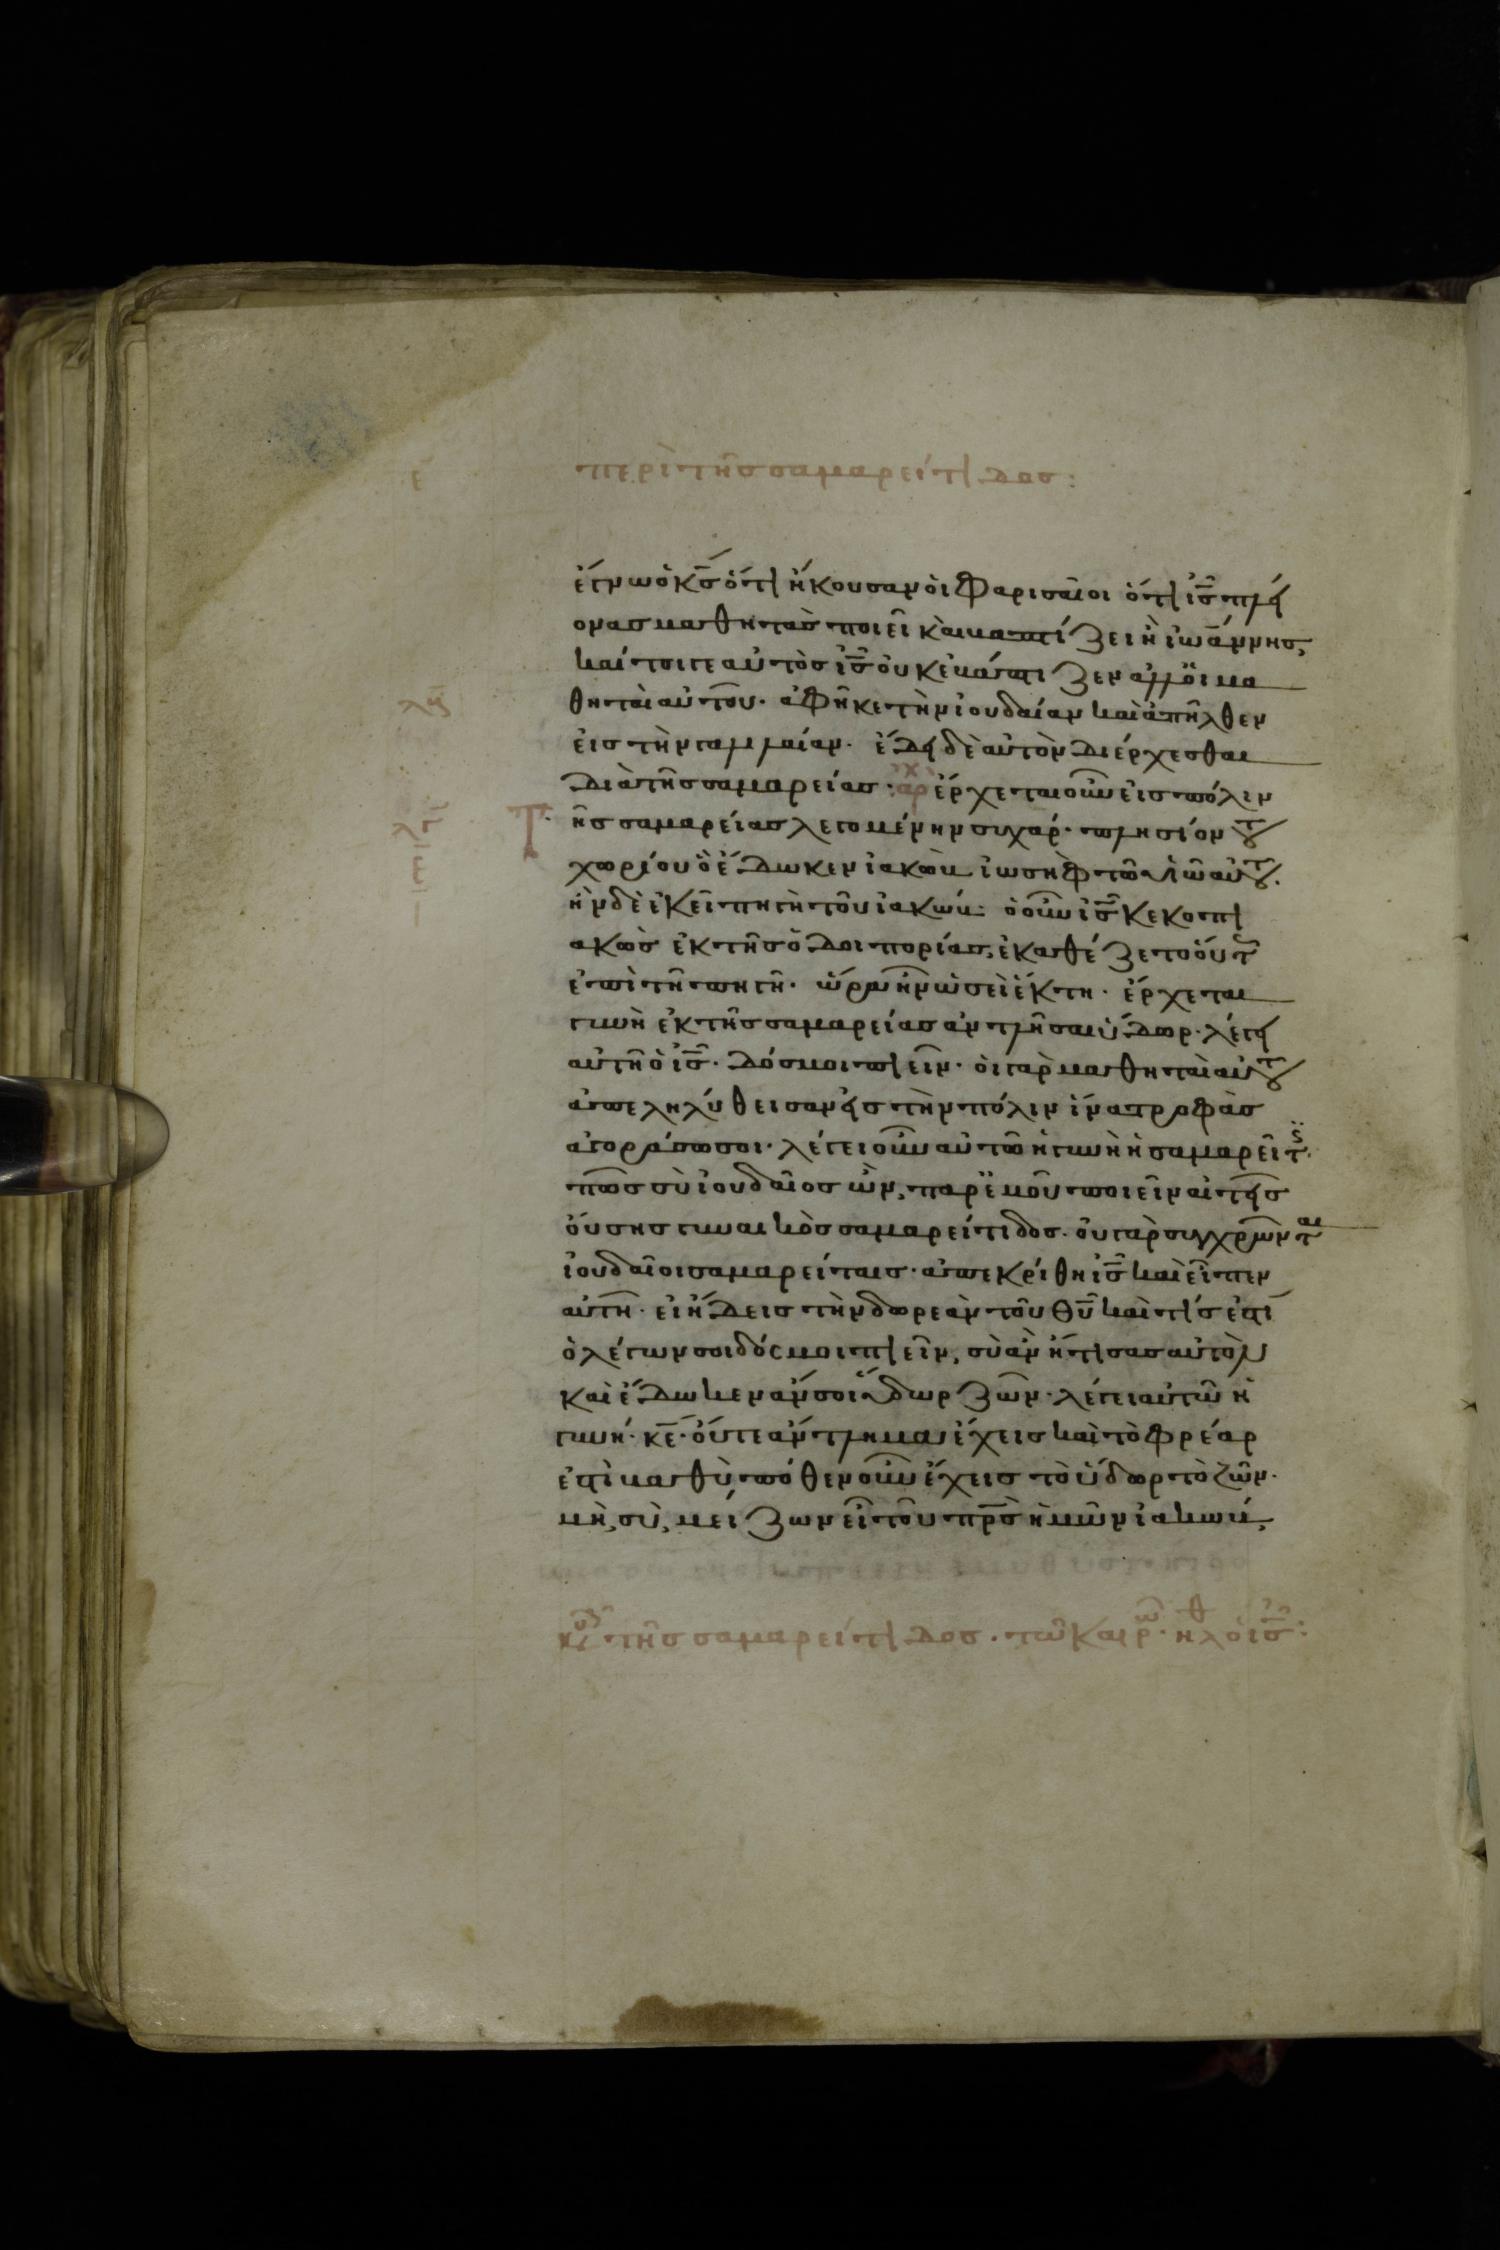 ε περὶ τῆς σαμαρείτιδος:
ἔγνω ὁ κ̅ς̅ ὅτι ἤκουσαν ὁι φαρισαῖοι ὅτι ἰ̅ς̅ πλεί
ονας μαθητὰς ποιεῖ κὰι βαπτίζει ἢ ἰωάννης,
καίτοιγε αὐτὸς ἰ̅ς̅ ὀυκ ἐβάπτιζεν ἀλλ ὁι μα
θηταὶ αὐτοῦ. ἀφῆκε τὴν ἰουδαίαν καὶ ἀπῆλθεν
ἐις τὴν γαλλαίαν. ἔδει δὲ αὐτὸν διέρχεσθαι
διὰ τῆς σαμαρείας. ἀρχ ἔρχεται οὖν εἰς πόλιν
Τ ῆς σαμαρείας λεγομένην συχάρ. πλησίον τ
χωρίου ὃ ἔδωκεν ἰακὼβ ἰωσὴφ τῶ υἱῶ αὐτ.
ἦν δὲ ἐκεῖ πηγὴ τοῦ ἰακώβ. ὁ οὖν ἰ̅ς̅ κεκοπι
ακὼς ἐκ τῆς ὁδοιπορίας, ἐκαθέζετο ὅυτ
ἐπὶ τῆ πηγῆ. ὥρα ἦν ὡσεὶ ἕκτη. ἔρχεται
γυνὴ ἐκ τῆς σαμαρείας ἀντλῆσαι ὕδωρ. λέγει
αὐτῆ ὁ ἰ̅ς̅. δός μοι πιεῖν. ὁι γὰρ μαθηταὶ αὐτ
ἀπεληλύθεισαν εἰς τὴν πόλιν ἵνα τροφὰς
ἀγοράσωσι. λέγει οὖν αὐτῶ ἡ γυνὴ ἡ σαμαρεῖτ.
πῶς σὺ ἰουδαῖος ὢν, παρ ἐμοῦ ποιεῖν αἰτεῖς
ὄυσης γυναικὸς σαμαρείτιδος. ὀυ γὰρ συγχρῶνται
ἰουδαῖοι σαμαρείταις. ἀπεκρίθη ἰ̅ς̅ καὶ εἶπεν
αὐτῆ. εἰ ἤδεις τὴν δωρεὰν τοῦ θ̅υ̅ καὶ τίς ἐστι
ὁ λέγων σοι δός μοι πιεῖν, σὺ ἂν ἤτισας αὐτὸν
καὶ ἔδωκεν ἄν σοι ὕδωρ ζῶν. λέγει αὐτῶ ἡ
γυνή. κ̅ε̅. ὄυτε ἄντλημα ἔχεις καὶ τὸ φρέαρ
ἐστὶ βαθὺ, πόθεν οὖν ἔχεις τὸ ὕδωρ τὸ ζῶν.
μὴ, σὺ, μείζων εἶ τοῦ π̅ρ̅ς̅ ἡμῶν ἰακώβ,
τῆς σαμαρείτιδος. τῶ καιρῶ. ἦλθ ὁ ἰ̅ς̅: